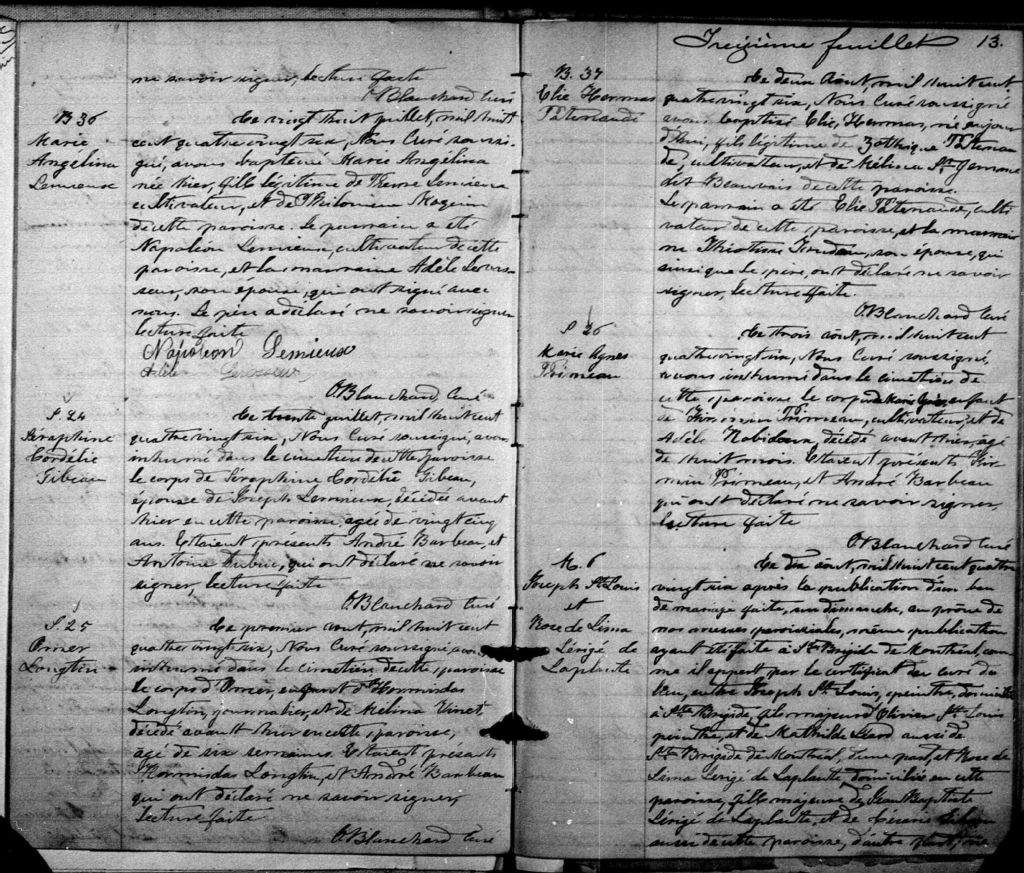 ne savoir signer, lecture faite
O Blanchard Curé
B 36
Marie
Angelina
Lemieux
Ce vingt huit juillet, mil huit
cent quatre vingt six, Nous Curé soussi-
gné, avons baptisé Marie Angelina
née hier, fille légitime de Pierre Lemieux
cultivateur, et de Philomene
de cette paroisse. Le parrain a été
Napoléon Lemieux, cultivateur de cette
paroisse, et la marraine Adèle Levas-
seur, son épouse, qui ont signé avec
nous. Le père a déclaré ne savoir signer
lecture faite
Napoleon Lemieux
Adèle Levasseur
O Blanchard Curé
S. 24
Séraphine
Cordélie
Gibeau
Ce trente juillet, mil huit cent
quatre vingt six, Nous Curé soussigné, avons
inhumé dans le cimetière de cette paroisse
le corps de Séraphine Cordélie Gibeau,
épouse de Joseph Lemieux, décédée avant
hier en cette paroisse, agée de vingt cinq
ans. Etaient présents André Barbeau, et
Antoine Dubuc, qui ont déclaré ne savoir
signer, lecture faite
O Blanchard Curé
S. 25
Omer
Longtin
Ce premier aout, mil huit cent
quatre vingt six, Nous Curé soussigné, avons
inhumé dans le cimetière de cette paroisse
le corps d'Omer, enfant d'Hormisdas
Longtin, journalier, et de Melina Vinet,
décédé avant hier en cette paroisse,
agé de six semaines. Etaient présents
Hormisdas Longtin, et André Barbeau
qui ont déclaré ne savoir signer,
lecture faite
O Blanchard Curé
Treizième feuillet 13.
B. 37
Elie Hermas
Paternaude
Ce deux aout, mil huit cent
quatre vingt six, Nous Curé soussigné
avons baptisé Elie, Hermas, né aujour
d'hui, fils légitime de Zothique Paternau
de, cultivateur, et de Mélina St. Jemme
dit Beauvais de cette paroisse.
Le parrain a été Elie Paternaude, culti
vateur de cette paroisse, et la marrai
ne son épouse, qui
ainsi que le père, ont déclaré ne savoir
signer, lecture faite.
O Blanchard Curé
S 26
Marie Agnes
Primeau
Ce trois aout, mil huit cent
quatre vingt six, Nous Curé soussigné,
avons inhumé dans le cimetière de
cette paroisse le corps de Marie Agnes, enfant
de Firmin Primeau, cultivateur, et de
Adèle Robidoux, décédé avant hier, agé
de huit mois. Etaient présents Fir-
min Primeau, et André Barbeau
qui ont déclaré ne savoir signer,
lecture faite
O Blanchard Curé
M. 6
Joseph St. Louis
et
Rose de Lima
Lérigé de
Laplante
Ce dix aout, mil huit cent quatre
vingt six après la publication d'un ban
de mariage faite, un dimanche, au prône de
nos messes paroissiales, même publication
ayant été faite à Ste Brigide de Montréal, com
me il appert par le certificat du curé du
lieu, entre Joseph St. Louis, peintre, domicilié
à Ste Brigide, fils majeur d'Olivier St. Louis
peintre, et de Mathilde aussi de
Ste Brigide de Montréal, d'une part, et Rose de
Lima Lérigé de Laplante, domiciliée en cette
paroisse, fille majeure de Jean Baptiste
Lérigé de Laplante, et de Césarie
aussi de cette paroisse, d'autre part,